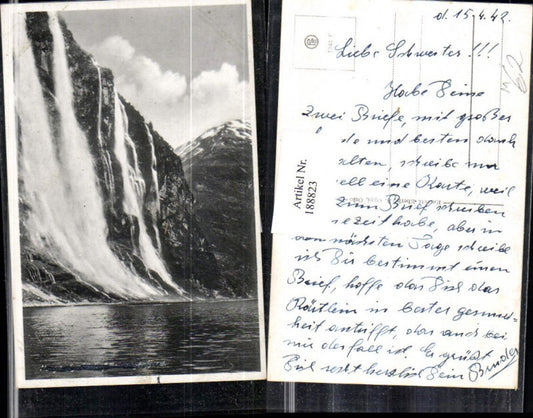 d. 15.4.42
Liebe Schwester !!!
Habe Deine
zwei Briefe, mit großer
und besten Dank
schreibe
eine Karte, weil
zum Brief schreiben
habe, aber in
den nächsten Tage schreibe
ich Dir bestimmt einen
Brief, hoffe das Dich das
Kärtlein in bester gesund-
heit antrifft, das auch bei
mir der fall ist. Es grüßt
Dich recht herzlich Dein Bruder
62
Artikel Nr.
188823